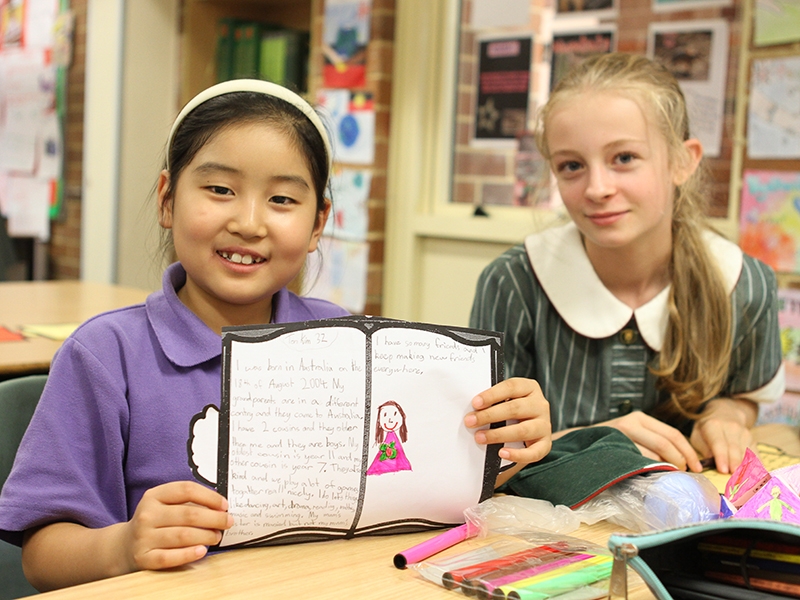 I was born in Australia on the
18th of August 2004. My
grandparents are in a different
and they came to Australia.
I have 2 cousins and they older
than me and they are boys. My
oldest cousin is year 11 and my
other cousin is year 7. They are
kind and we play a lot of games
together really nicely. I do lots things
like dancing, art, drama, reading,
and swimming. My mum's
I have so many friends and I
keep making new friends
everywhere.